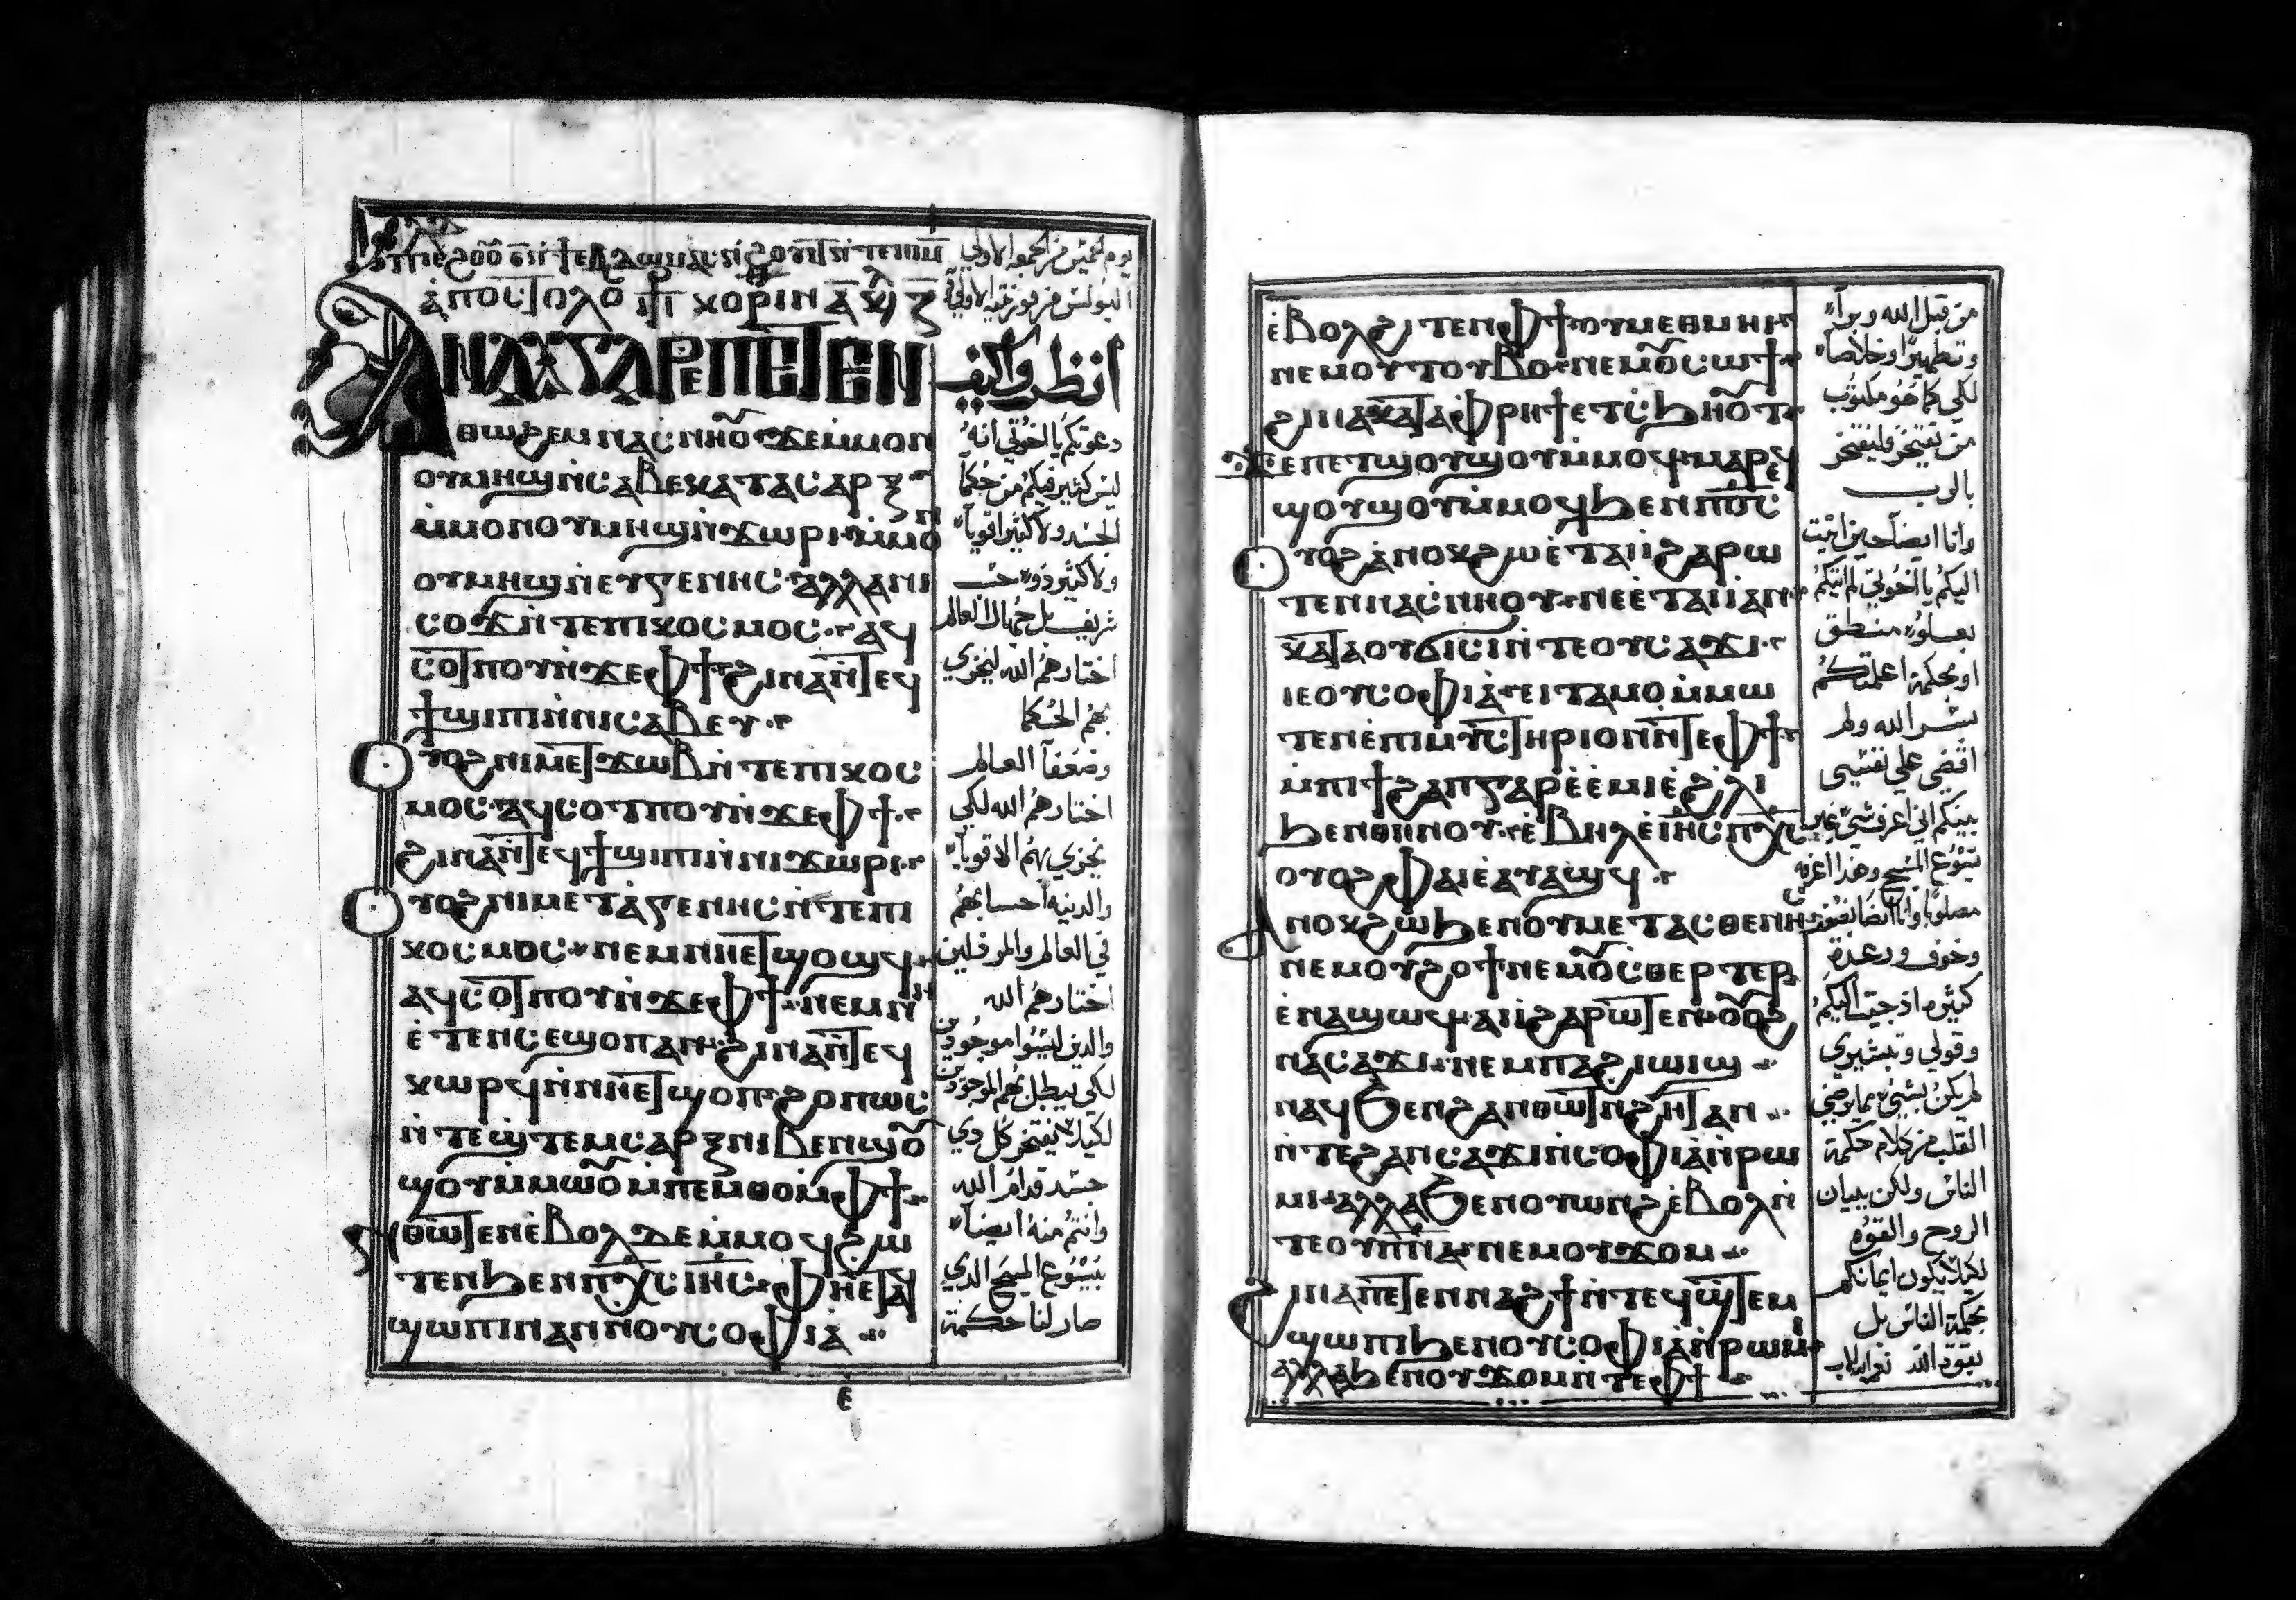 ⲁ̀ⲡⲟⲥⲧⲟⲗⲟ ⲡ̅ ⲕⲟⲣⲓⲛ ⲁ̅ ⲕⲉ̅ⲫ ⲍ̅
ⲁⲛⲁⲩⲅⲁⲣⲉⲡⲉⲧⲉⲛ
ⲑⲱϩⲉⲙⲛⲁⲥⲛⲏⲟⲩϫⲉⲙ̀ⲙⲟⲛ
ⲟⲩⲙⲏϣⲛ̀ⲥⲁⲃⲉⲕⲁⲧⲁⲥⲁⲣⲝ
ⲙ̀ⲙⲟⲛⲟⲩⲙⲏϣⲛ̀ϫⲱⲣⲓ ⲙ̀ⲙⲟⲛ
ⲟⲩⲙⲏϣⲛ̀ⲉⲩⲅⲉⲛⲏⲥ ⲁⲗⲗⲁⲛⲓ
ⲥⲟϫⲛ̀ⲧⲉⲡⲓⲕⲟⲥⲙⲟⲥ ⲁϥ
ⲥⲟⲧⲡⲟⲩⲛ̀ϫⲉⲫϯ ϩⲓⲛⲁⲛ̀ⲧⲉϥ
ϯϣⲓⲡⲓⲛ̀ⲛⲓⲥⲁⲃⲉⲩ
ⲟⲩⲟϩⲛⲓⲙⲉⲧϫⲱⲃⲛ̀ⲧⲉⲡⲓⲕⲟⲥ
ⲙⲟⲥ ⲁϥⲥⲟⲧⲡⲟⲩⲛ̀ϫⲉⲫϯ
ϩⲓⲛⲁⲛ̀ⲧⲉϥϯϣⲓⲡⲓⲛ̀ⲛⲓϫⲱⲣⲓ
ⲟⲩⲟϩⲛⲓⲙⲉⲧⲁ̀ⲅⲉⲛⲏⲥⲛ̀ⲧⲉⲡⲓ
ⲕⲟⲥⲙⲟⲥ ⲛⲉⲙⲛⲏⲉⲧϣⲟϣϥ
ⲁϥⲥⲟⲧⲡⲟⲩⲛ̀ϫⲉⲫϯ ⲛⲉⲙⲛⲏ
ⲉ̀ⲧⲉⲛⲥⲉϣⲟⲡⲁⲛ ϩⲓⲛⲁⲛ̀ⲧⲉϥ
ⲕⲱⲣϥⲛ̀ⲛⲏⲉⲧϣⲟⲡ ϩⲟⲡⲱⲥ
ⲛ̀ⲧⲉϣⲧⲉⲙⲥⲁⲣⲝⲛⲓⲃⲉⲛϣⲟⲩ
ϣⲟⲩⲙ̀ⲙⲱⲟⲩⲙ̀ⲡⲉⲙⲑⲟⲙ̀ⲫϯ
ⲛ̀ⲑⲱⲧⲉⲛⲉ̀ⲃⲟⲗⲇⲉⲙ̀ⲙⲟϥϩⲱ
ⲧⲉⲛϧⲉⲛⲡⲭ̅ⲥ̅ⲓⲏ̅ⲥ̅ ⲫⲏⲉⲧⲁϥ
ϣⲱⲡⲓⲛⲁⲛⲛⲟⲩⲥⲟⲫⲓⲁ̀
ⲉ̅
يوم الخميس من الجمعه الاولي
البولس من قورنتيه الاولي
انظروا كيف
دعوتكم يا اخوتي انه
ليس كثير فيكم من حكما
الجسد ولا كثير اقويا
ولا كثير ذوه حسب
شريف بل جهال العالم
اختارهم الله ليخزي
بهم الحكما
وضعفآ العالم
اختارهم الله لكي
يخزي بهم الاقويا
والدنيه احسابهم
في العالم والمرذلين
اختارهم الله
والدين ليسوا موجودين
لكي يبطل بهم الموجودين
لكيلا يفتخر كل دي
جسد قدام الله
وانتم منه ايضا
بيسوع المسيح الدي
صار لنا حكمة
ⲉ̀ⲃⲟⲗϩⲓⲧⲉⲛⲫϯ ⲟⲩⲙⲉⲑⲙⲏⲓ
ⲛⲉⲙⲟⲩⲧⲟⲩⲃⲟ ⲛⲉⲙⲟⲩⲥⲱϯ
ϩⲓⲛⲁⲕⲁⲧⲁⲫⲣⲏϯⲉⲧⲥ̀ϧⲏⲟⲩⲧ
ϫⲉⲡⲉⲧϣⲟⲩϣⲟⲩⲙ̀ⲙⲟϥ ⲙⲁⲣⲉϥ
ϣⲟⲩϣⲟⲩⲙ̀ⲙⲟϥϧⲉⲛⲡⲟ̅ⲥ̅
ⲟⲩⲟϩⲁ̀ⲛⲟⲕϩⲱⲉ̀ⲧⲁⲓⲓ̀ϩⲁⲣⲱ
ⲧⲉⲛⲛⲁⲥⲛⲏⲟⲩ ⲛⲉⲉ̀ⲧⲁⲓⲓ̀ⲁⲛ
ⲕⲁⲧⲁⲟⲩϭⲓⲥⲓⲛ̀ⲧⲉⲟⲩⲥⲁϫⲓ
ⲓⲉⲟⲩⲥⲟⲫⲓⲁ̀ ⲉⲓⲧⲁⲙⲟⲙ̀ⲙⲱ
ⲧⲉⲛⲉ̀ⲡⲓⲙⲩⲥⲧⲏⲣⲓⲟⲛⲛ̀ⲧⲉⲫϯ
ⲙ̀ⲡⲓϯϩⲁⲡⲅⲁⲣⲉ̀ⲉ̀ⲙⲓⲉ̀ϩⲗⲓ
ϧⲉⲛⲑⲏⲛⲟⲩ ⲉ̀ⲃⲏⲗⲉ̀ⲓⲏ̅ⲥ̅ⲡⲭ̅ⲥ̅
ⲟⲩⲟϩⲫⲁⲓⲉ̀ⲁⲩⲁϣϥ
ⲁⲛⲟⲕϩⲱϧⲉⲛⲟⲩⲙⲉⲧⲁⲥⲑⲉⲛⲏⲥ
ⲛⲉⲙⲟⲩϩⲟϯ ⲛⲉⲙⲟⲩⲥ̀ⲑⲉⲣⲧⲉⲣ
ⲉ̀ⲛⲁϣⲱϥ ⲁⲓⲓ̀ϩⲁⲣⲱⲧⲉⲛ ⲟⲩⲟϩ
ⲡⲁⲥⲁϫⲓ ⲛⲉⲙⲡⲁϩⲓⲱⲓϣ
ⲛⲁϥϧⲉⲛϩⲁⲛⲑⲱⲧⲛ̀ϩⲏⲧⲁⲛ
ⲛ̀ⲧⲉϩⲁⲛⲥⲁϫⲓⲛ̀ⲥⲟⲫⲓⲁ̀ⲛ̀ⲣⲱ
ⲙⲓ ⲁⲗⲗⲁϧⲉⲛⲟⲩⲱⲛϩⲉ̀ⲃⲟⲗⲛ̀
ⲧⲉⲟⲩⲡ̅ⲛ̅ⲁ̅ ⲛⲉⲙⲟⲩϫⲟⲙ
ϩⲓⲛⲁⲡⲉⲧⲉⲛⲛⲁϩϯⲛ̀ⲧⲉϥϣⲧⲉⲙ
ϣⲱⲡⲓϧⲉⲛⲟⲩⲥⲟⲫⲓⲁ̀ⲛ̀ⲣⲱⲙⲓ
ⲁⲗⲗⲁϧⲉⲛⲟⲩϫⲟⲙⲛ̀ⲧⲉⲫϯ
من قبل الله وبرآ
وتطهيرا وخلاصا
لكي كما هو مكتوب
من يفتخر فليفتخر
بالرب
وانا ايضا حين اتيت
اليكم يا اخوتي لم اتيكم
بعلوه منطق
او بحكمة اعلمتكم
بسر الله ولم
اقضي علي نفسي
بينكم اني اعرف شي غير
يسوع المسيح وهدا اعرفه
مصلوبا وانا ايضا بضعف
وخوف ورعدة
كثيره اذ جيت اليكم
وقولي وتبشيري
لم يكن بشي مما يرضي
القلب من كلام حكمة
الناس ولكن ببيان
الروح والقوه
لكيلا يكون ايمانكم
بحكمة الناس بل
بقوة الله